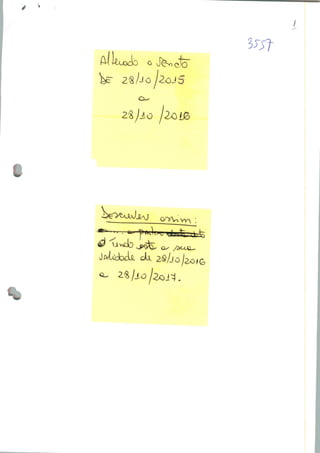 1
3557
Alterado o
DE 28/10/2015
a
28/10/2016
Descrever assim:
Tendo este a sua
validade de 28/10/2016
a 28/10/2017.